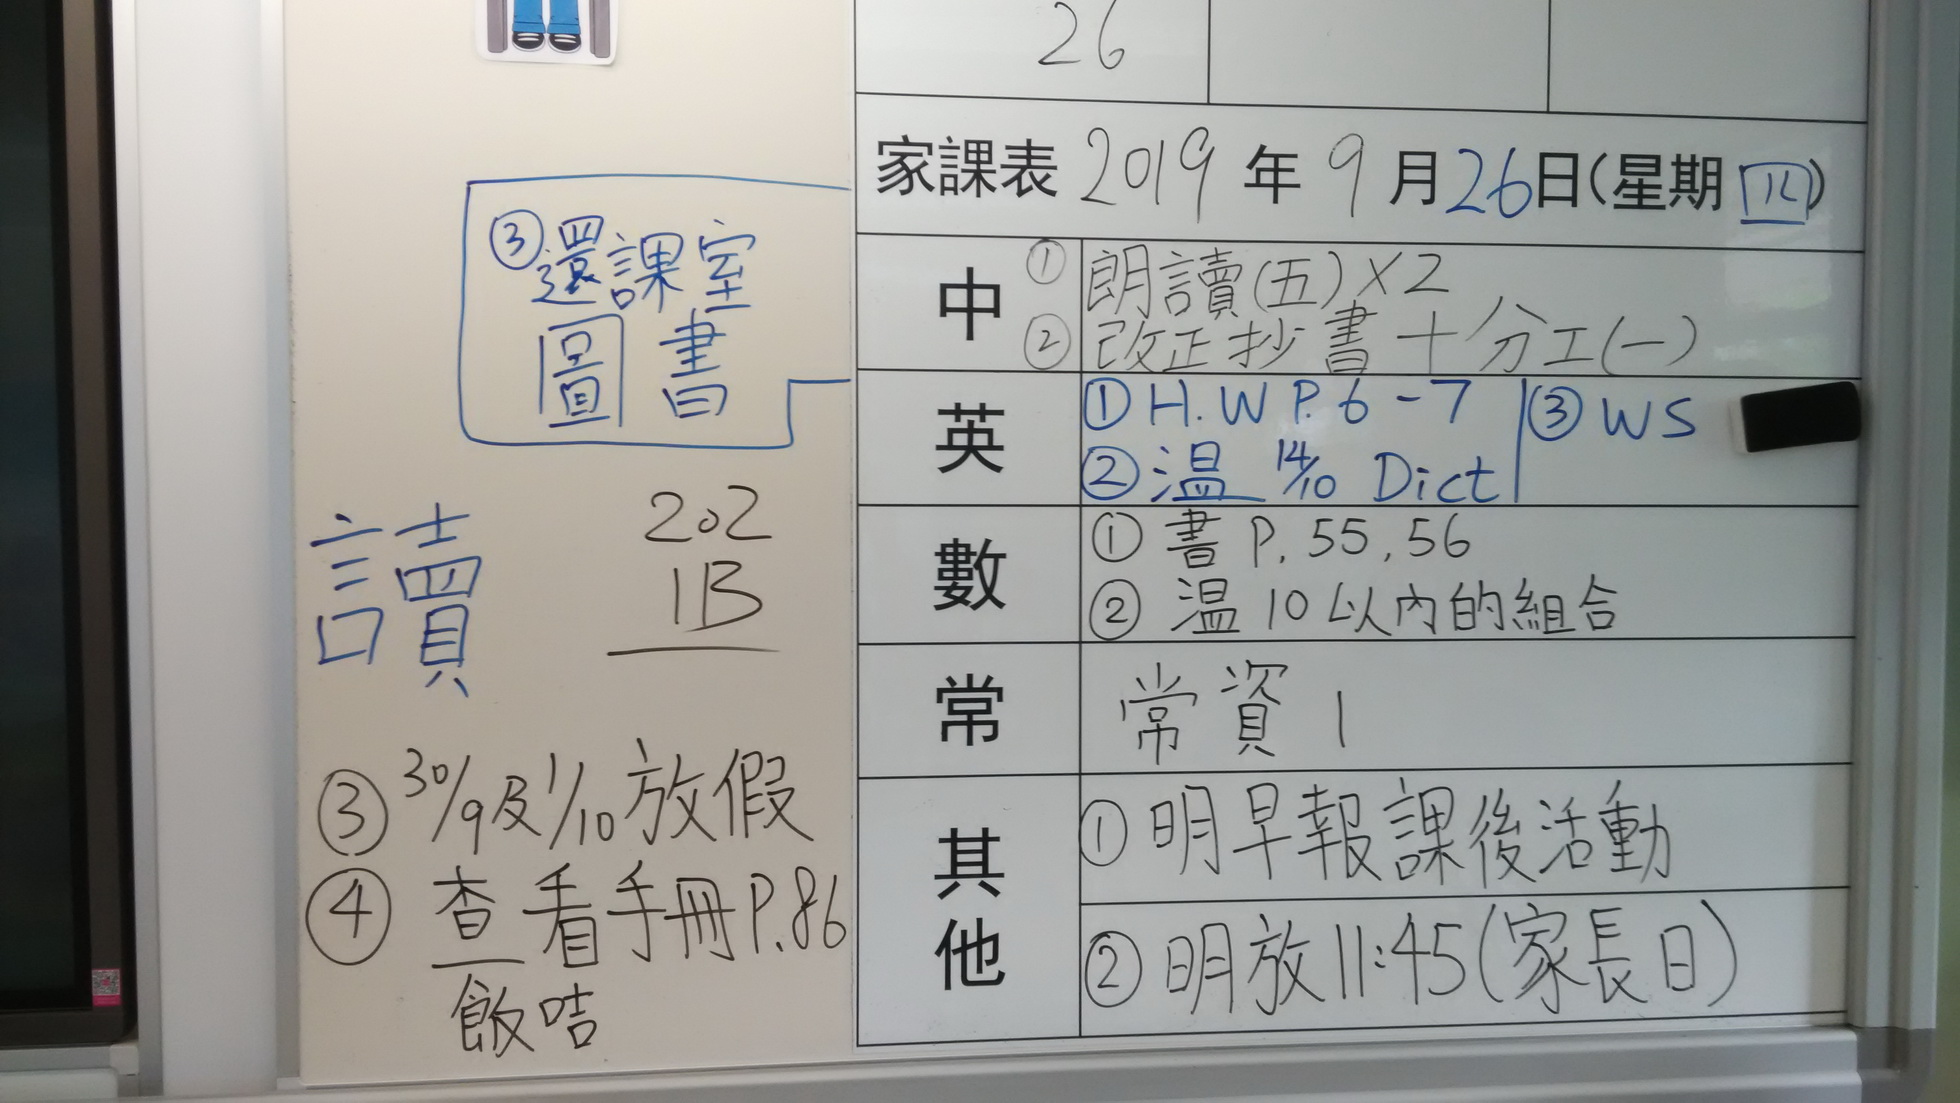 26
家課表 2019 年 9 月 26 日(星期 四)
中
① 朗讀(五)×2
② 改正抄書十分工(一)
③還課室
圖書
英
① H.W P.6-7
② 温 14/10 Dict
③ WS
數
① 書 P. 55, 56
② 温 10 以內的組合
常
常資 1
其他
① 明早報課後活動
② 明放11:45(家長日)
讀
202
1B
③ 30/9及1/10放假
④ 查看手冊P.86
飯咭